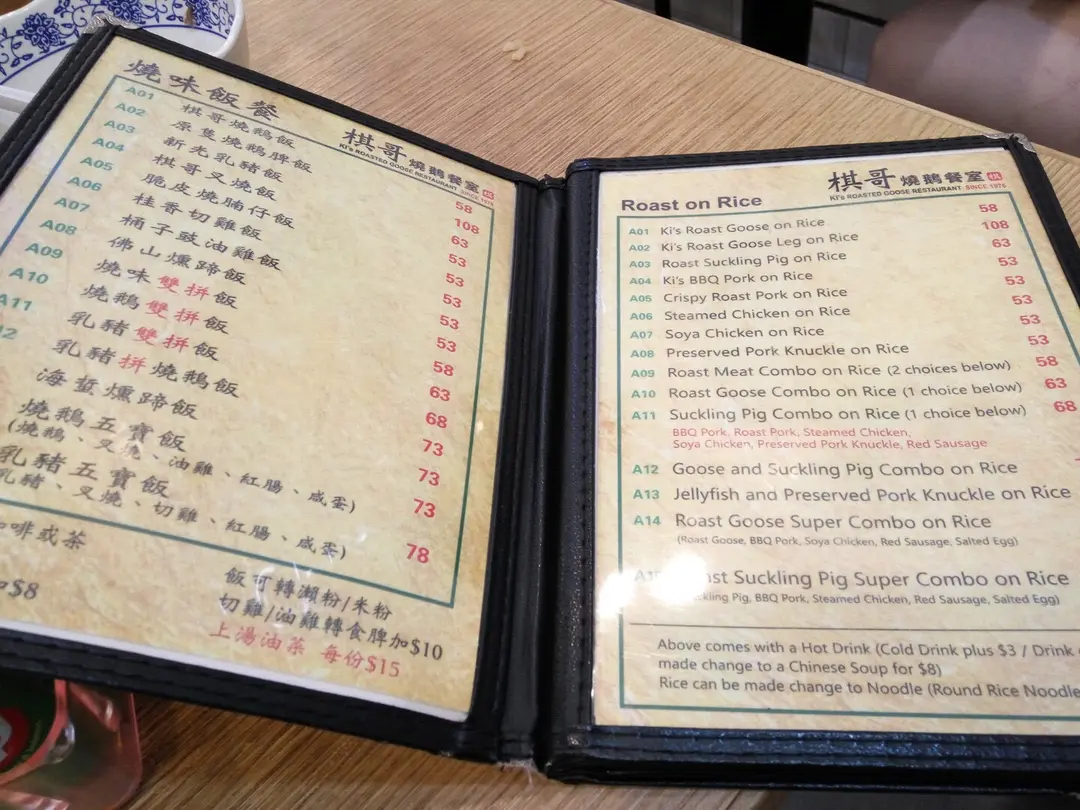 燒味飯餐
棋哥燒鵝餐室
KI's ROASTED GOOSE RESTAURANT SINCE 1976
A01 棋哥燒鵝飯 58
A02 原隻燒鵝脾飯 108
A03 新光乳豬飯 63
A04 棋哥叉燒飯 53
A05 脆皮燒腩仔飯 53
A06 桂香切雞飯 53
A07 桶子豉油雞飯 53
A08 佛山燻蹄飯 53
A09 燒味雙拼飯 58
A10 燒鵝雙拼飯 63
A11 乳豬雙拼飯 68
乳豬拼燒鵝飯 73
海蜇燻蹄飯 73
燒鵝五寶飯 73
(燒鵝、叉燒、油雞、紅腸、咸蛋)
乳豬五寶飯 78
乳豬、叉燒、切雞、紅腸、咸蛋)
啡或茶
$8
飯可轉瀨粉/米粉
切雞/油雞轉食脾加$10
上湯油菜 每份$15
棋哥燒鵝餐室
KI's ROASTED GOOSE RESTAURANT SINCE 1976
Roast on Rice
A01 Ki's Roast Goose on Rice 58
A02 Ki's Roast Goose Leg on Rice 108
A03 Roast Suckling Pig on Rice 63
A04 Ki's BBQ Pork on Rice 53
A05 Crispy Roast Pork on Rice 53
A06 Steamed Chicken on Rice 53
A07 Soya Chicken on Rice 53
A08 Preserved Pork Knuckle on Rice 53
A09 Roast Meat Combo on Rice (2 choices below) 58
A10 Roast Goose Combo on Rice (1 choice below) 63
A11 Suckling Pig Combo on Rice (1 choice below) 68
BBQ Pork, Roast Pork, Steamed Chicken,
Soya Chicken, Preserved Pork Knuckle, Red Sausage
A12 Goose and Suckling Pig Combo on Rice
A13 Jellyfish and Preserved Pork Knuckle on Rice
A14 Roast Goose Super Combo on Rice
(Roast Goose, BBQ Pork, Soya Chicken, Red Sausage, Salted Egg)
Suckling Pig Super Combo on Rice
Pig, BBQ Pork, Steamed Chicken, Red Sausage, Salted Egg)
Above comes with a Hot Drink (Cold Drink plus $3 / Drink
made change to a Chinese Soup for $8)
Rice can be made change to Noodle (Round Rice Noodle